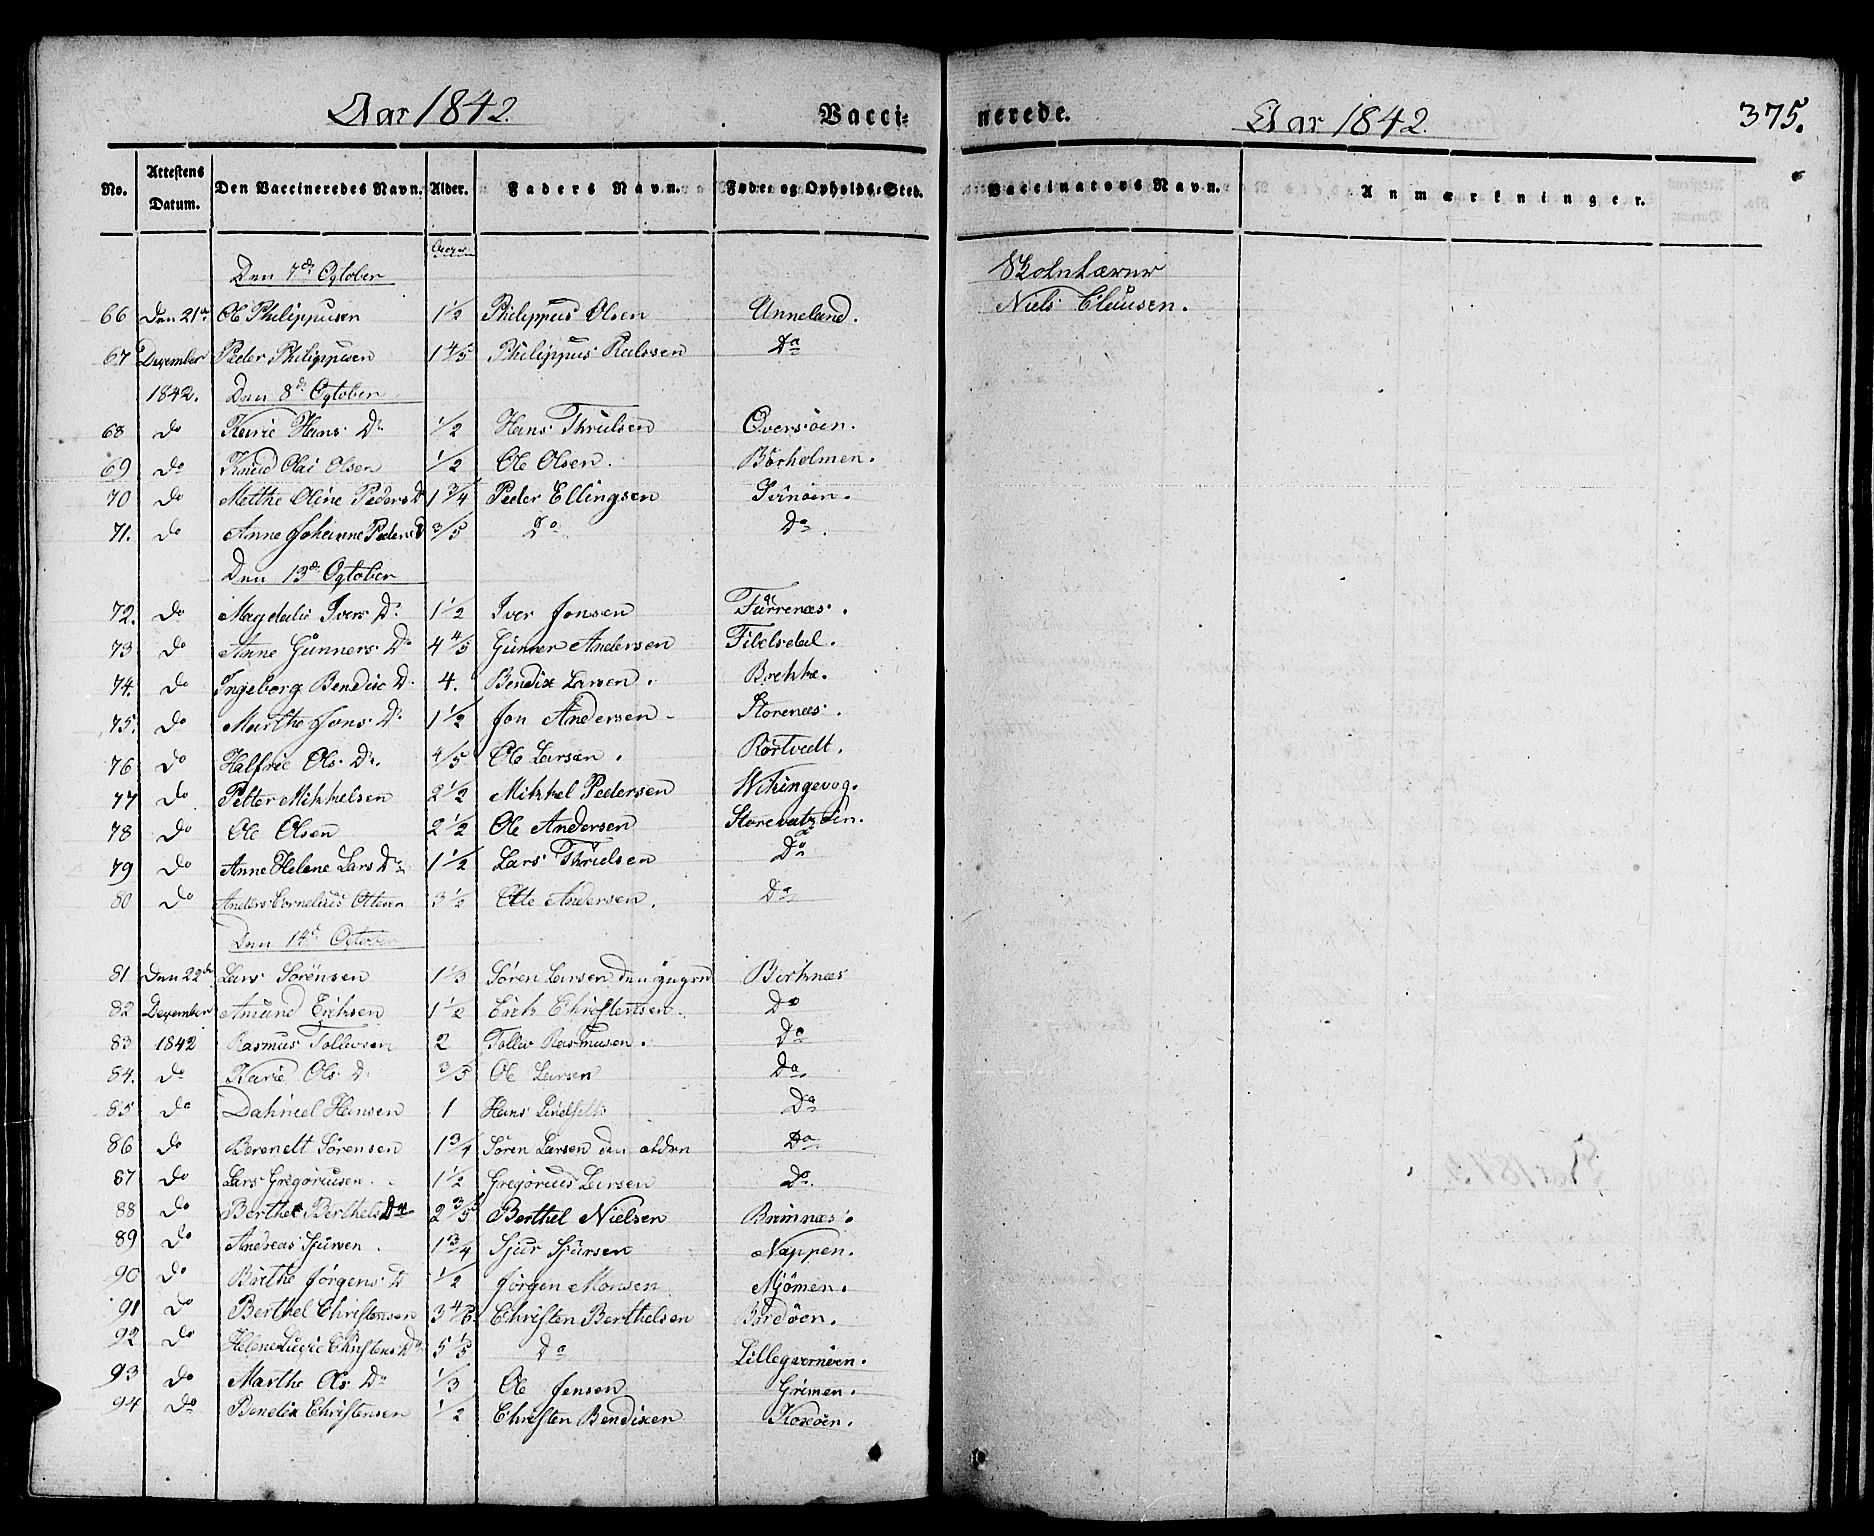 Aar 1842.
Vacci-
nerede.
Aar 1842.
375.
No. Attestens Datum. Den Vaccineredes Navn. Alder. Faders Navn. Føde- og Opholds-Sted. Vaccinators Navn. Anmærkninger.
Den 7de October Skolelærer
66 Den 21de Ole Philippusen 1 1/2 Philippus Olsen Unneland. Niels Clausen.
67 December Peder Philippusen 1 4/5 Philippus Do
1842. Den 8de October
68 do Karie Hans Dr 1/2 Hans Thrulsen Oversöen.
69 do Knud Olai Olsen 1/2 Ole Olsen. Börholmen.
70 do Methe Oline Peders D 1 3/4 Peder Ellingsen Svinöen.
71. do Anne Johanne Peders D 3/5 Do Do
Den 13de October
72. do Magdalie Ivers Dr 1 1/2 Iver Jonsen Furrenæs.
73 do Anne Gunners Dr 4 4/5 Gunner Andersen Fibelsdal.
74. do Ingeborg Bendix D. 4. Bendix Larsen. Brekke.
75. do Marthe Jons Dr 1 1/2 Jon Andersen Storenæs.
76 do Halfrie Ols Dr. 4/5 Ole Larsen. Rörtvedt.
77 do Petter Mikkelsen 2 1/2 Mikkel Pedersen Wikingevog.
78 do Ole Olsen 2 1/2 Ole Andersen
79 do Anne Helene Lars Dr 1 1/2 Lars Thrulsen Do
80 do Anders Cornelius Ottesen 3 1/2 Otte Andersen. Do
Den 14de October
81 Den 22de Lars Sörensen 1 1/3 Sören Larsen den yngre Birknæs
82 December Amund Erichsen 1 1/2 Erich Christensen. Do
83 1842 Rasmus Tollevsen 2 Tollev Rasmusen. Do
84. do Karie Ols D 3/5 Ole Larsen Do
85 do Dahniel Hansen 1 Hans Do
86 do Berendt Sörensen 1 3/4 Sören Larsen den ældre Do
87 do Lars Gregoriusen. 1 1/2 Gregorius Larsen Do
88 do Berthe Berthels Dr 2 3/5 Berthel Nielsen Brimnæs.
89 do Andreas Sjursen. 1 3/4 Sjur Sjursen Nappen.
90 do Birthe Jörgens D 1/2 Jörgen Monsen Mjömen.
91 do Berthel Christensen 3 4/5 Christen Berthelsen
92 do Helene Christens Dr 5 1/5 Do
93 do Marthe Ols Dr 1/3 Ole Jensen Grimen.
94 do Bendix Christensen 1/2 Christen Bendixen